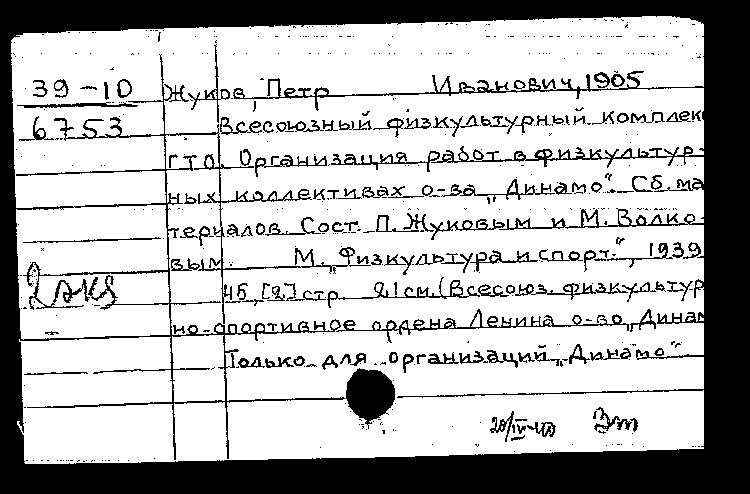 39-10 Жуков, Петр Иванович, 1905
6753 Всесоюзный физкультурный комплек
ГТО. Организация работ в физкультур-
ных коллективах о-ва „Динамо". Сб. ма
териалов. Сост. П. Жуковым и М. Волко-
вым. М., „Физкультура и спорт.", 1939
2 экз 46, [2] стр. 21 см. (Всесоюз. физкультур
но-спортивное ордена Ленина о-во „Динам
Только для организаций „Динамо".
Эт